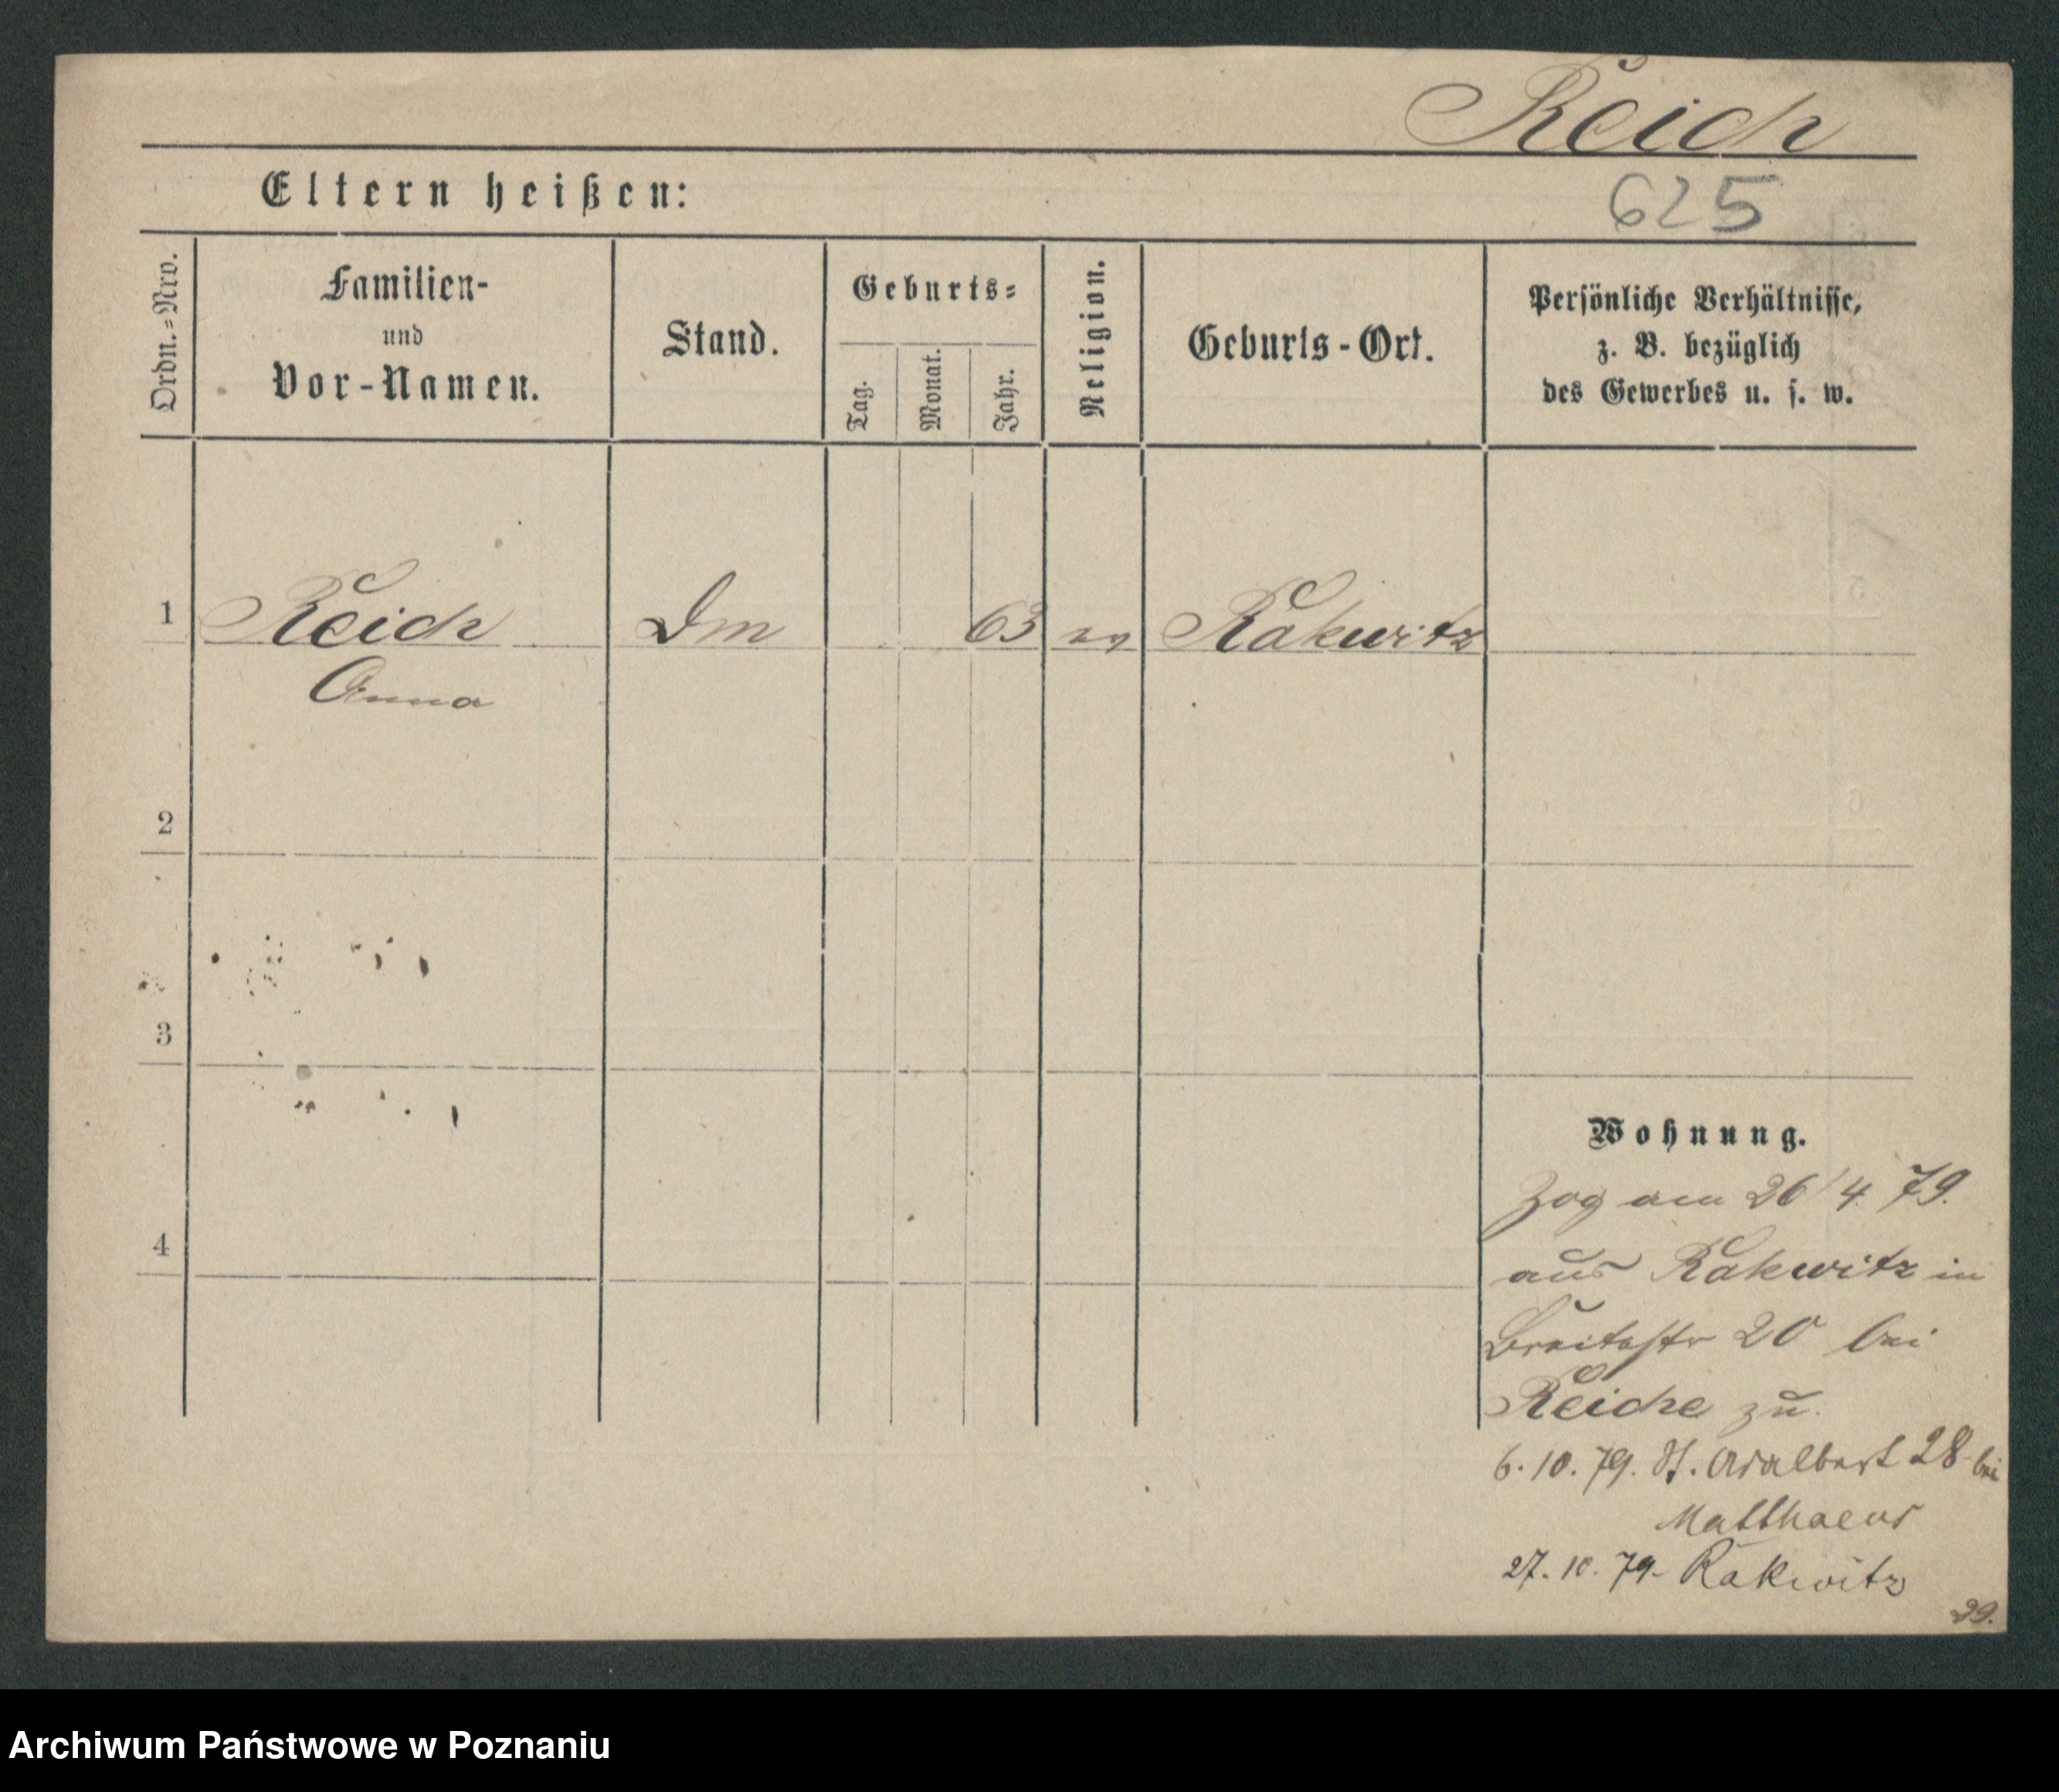 Reich
Eltern heißen:
625
Ordn.=Nro.
Familien-
und
Vor-Namen.
Stand.
Geburts=
Tag.
Monat.
Jahr.
Religion.
Geburts-Ort.
Persönliche Verhältnisse,
z. B. bezüglich
des Gewerbes u. s. w.
1 Reich Dm 63 ev Rakwitz
Anna
2
3
4
Wohnung.
Zog am 26/4. 79.
aus Rakwitz in
Breitestr 20 bei
Reiche zu.
6. 10. 79. St. Adalbert 28 bei
Matthaeus
27. 10. 79. Rakwitz
Archiwum Państwowe w Poznaniu